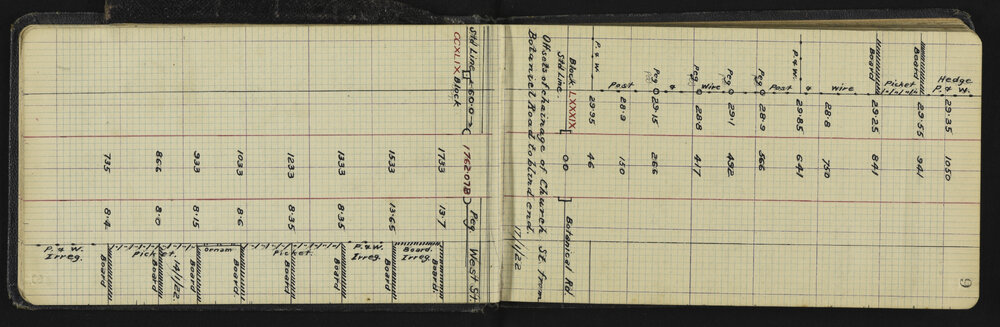 9
Hedge
P. & W. 29·35 1050
Board 29·55 941
Picket
Board 29·25 841
wire 28·8 750
&
P. & W. 29·85 641
Post
Peg 28·9 566
Peg 29·1 492
Wire
Peg 28·8 417
&
Peg 29·15 266
Post 28·9 150
P. & W. 29·95 46
Block LXXXIX
Std Line. 00 Botanical Rd
Offsets of chainage of Church St. from
Botanical Road to blind end.
17/1/22
Std Line 60·0 1762078 Peg West St.
CCXLIX Block
1733 13·7 Board
Board. Irreg.
1533 13·65
P. & W. Irreg.
1333 8·35 Board
1233 8·35 Board
Picket.
1033 8·6
ornam
933 8·15 Board
14/1/22.
866 8·0 Board
Picket.
735 8·4 Board
P. & W. Irreg.